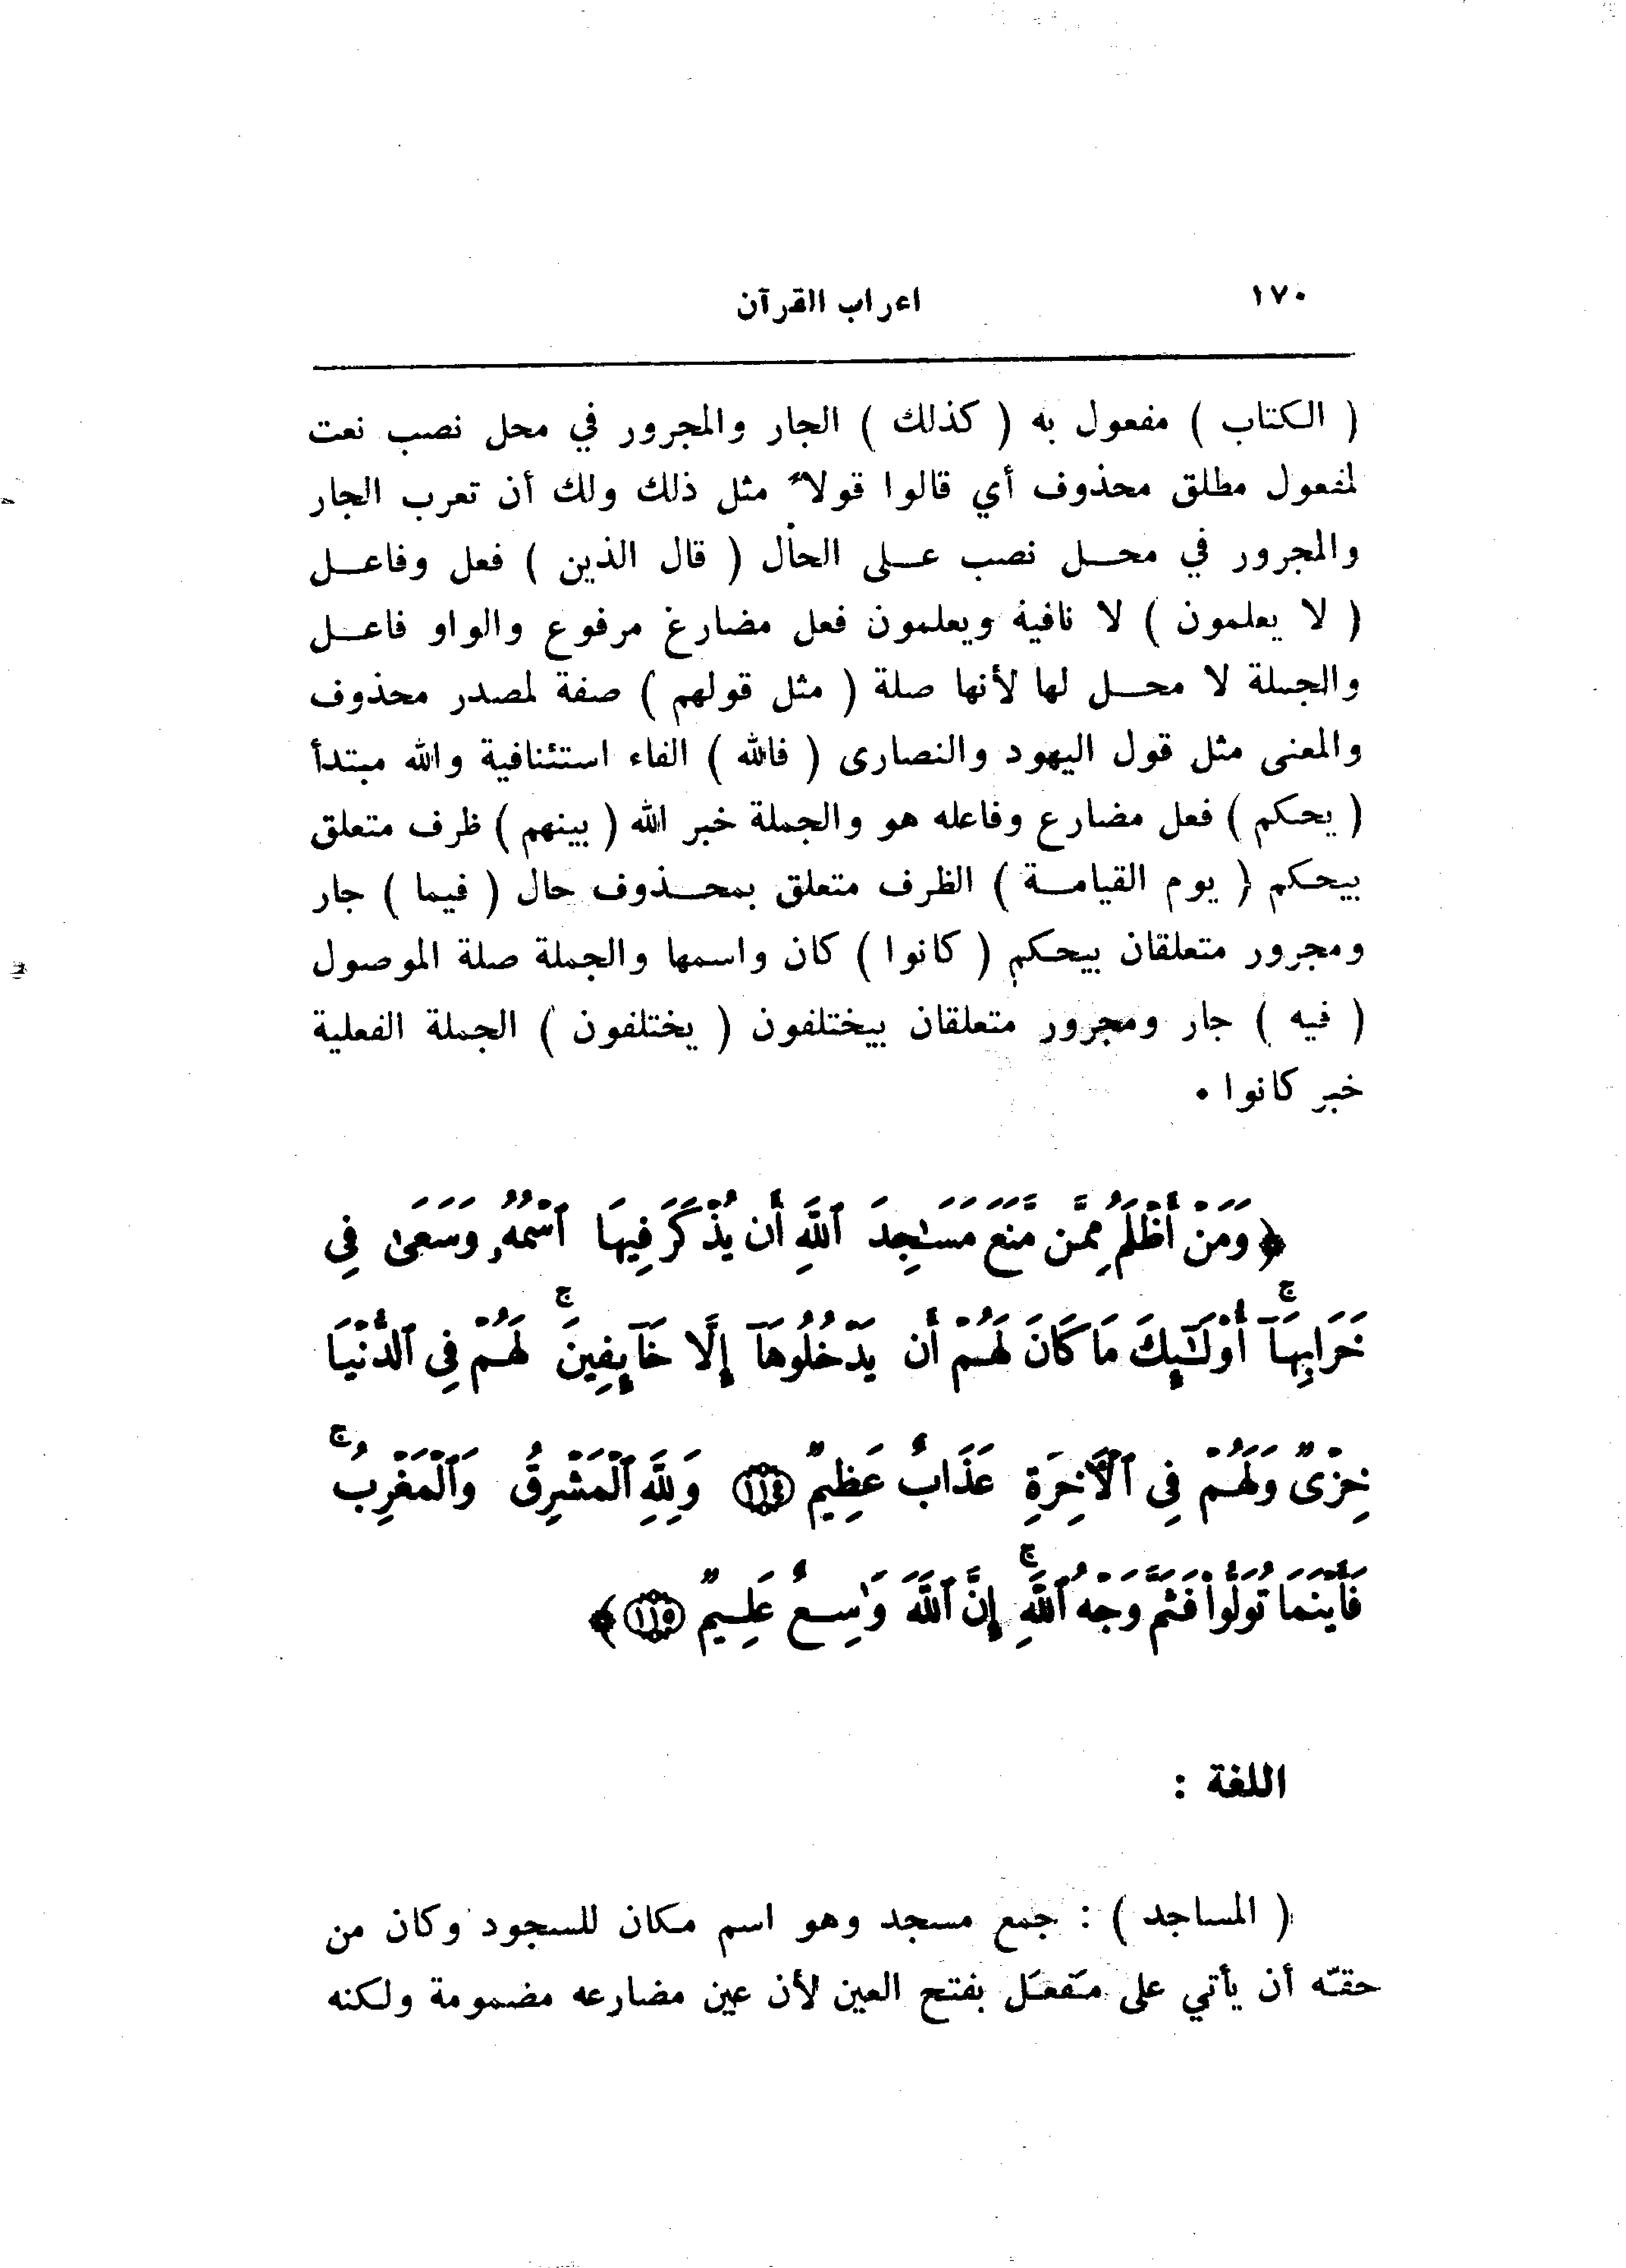 ١٧٠ اعراب القرآن
( الكتاب ) مفعول به ( كذلك ) الجار والمجرور في محل نصب نعت
لمفعول مطلق محذوف أي قالوا قولاً مثل ذلك ولك أن تعرب الجار
والمجرور في محـــل نصب عـــلى الحال ( قال الذين ) فعل وفاعـــل
( لا يعلمون ) لا نافية ويعلمون فعل مضارع مرفوع والواو فاعـــل
والجملة لا محـــل لها لأنها صلة ( مثل قولهم ) صفة لمصدر محذوف
والمعنى مثل قول اليهود والنصارى ( فالله ) الفاء استئنافية والله مبتدأ
( يحكم ) فعل مضارع وفاعله هو والجملة خبر الله ( بينهم ) ظرف متعلق
بيحكم ( يوم القيامـــة ) الظرف متعلق بمحـــذوف حال ( فيما ) جار
ومجرور متعلقان بيحكم ( كانوا ) كان واسمها والجملة صلة الموصول
( فيه ) جار ومجرور متعلقان بيختلفون ( يختلفون ) الجملة الفعلية
خبر كانوا .
﴿ وَمَنْ أَظْلَمُ مِمَّن مَّنَعَ مَسَـٰجِدَ ٱللَّهِ أَن يُذْكَرَ فِيهَا ٱسْمُهُۥ وَسَعَىٰ فِى
خَرَابِهَآ ۚ أُوْلَـٰٓئِكَ مَا كَانَ لَهُمْ أَن يَدْخُلُوهَآ إِلَّا خَآئِفِينَ ۚ لَهُمْ فِى ٱلدُّنْيَا
خِزْىٌ وَلَهُمْ فِى ٱلْأَخِرَةِ عَذَابٌ عَظِيمٌ ١١٤ وَلِلَّهِ ٱلْمَشْرِقُ وَٱلْمَغْرِبُ ۚ
فَأَيْنَمَا تُوَلُّواْ فَثَمَّ وَجْهُ ٱللَّهِ ۚ إِنَّ ٱللَّهَ وَٰسِعٌ عَلِيمٌ ١١٥ ﴾
اللغة :
( المساجد ) : جمع مسجد وهو اسم مكان للسجود وكان من
حقّه أن يأتي على مَفعَل بفتح العين لأن عين مضارعه مضمومة ولكنه